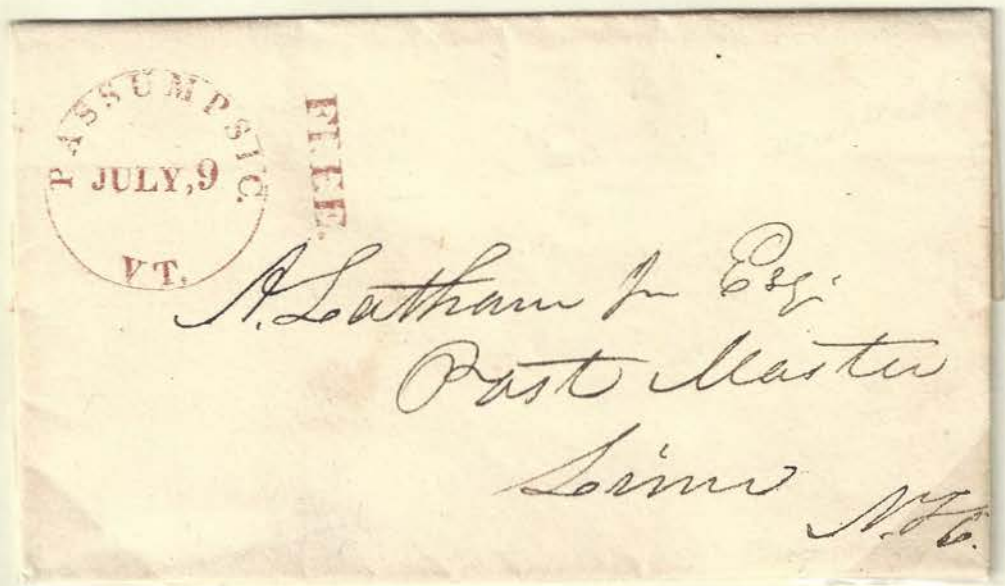 PASSUMPSIC.
JULY, 9
VT.
FREE.
A. Latham Jr Esq.
Post Master
Lime
N.H.